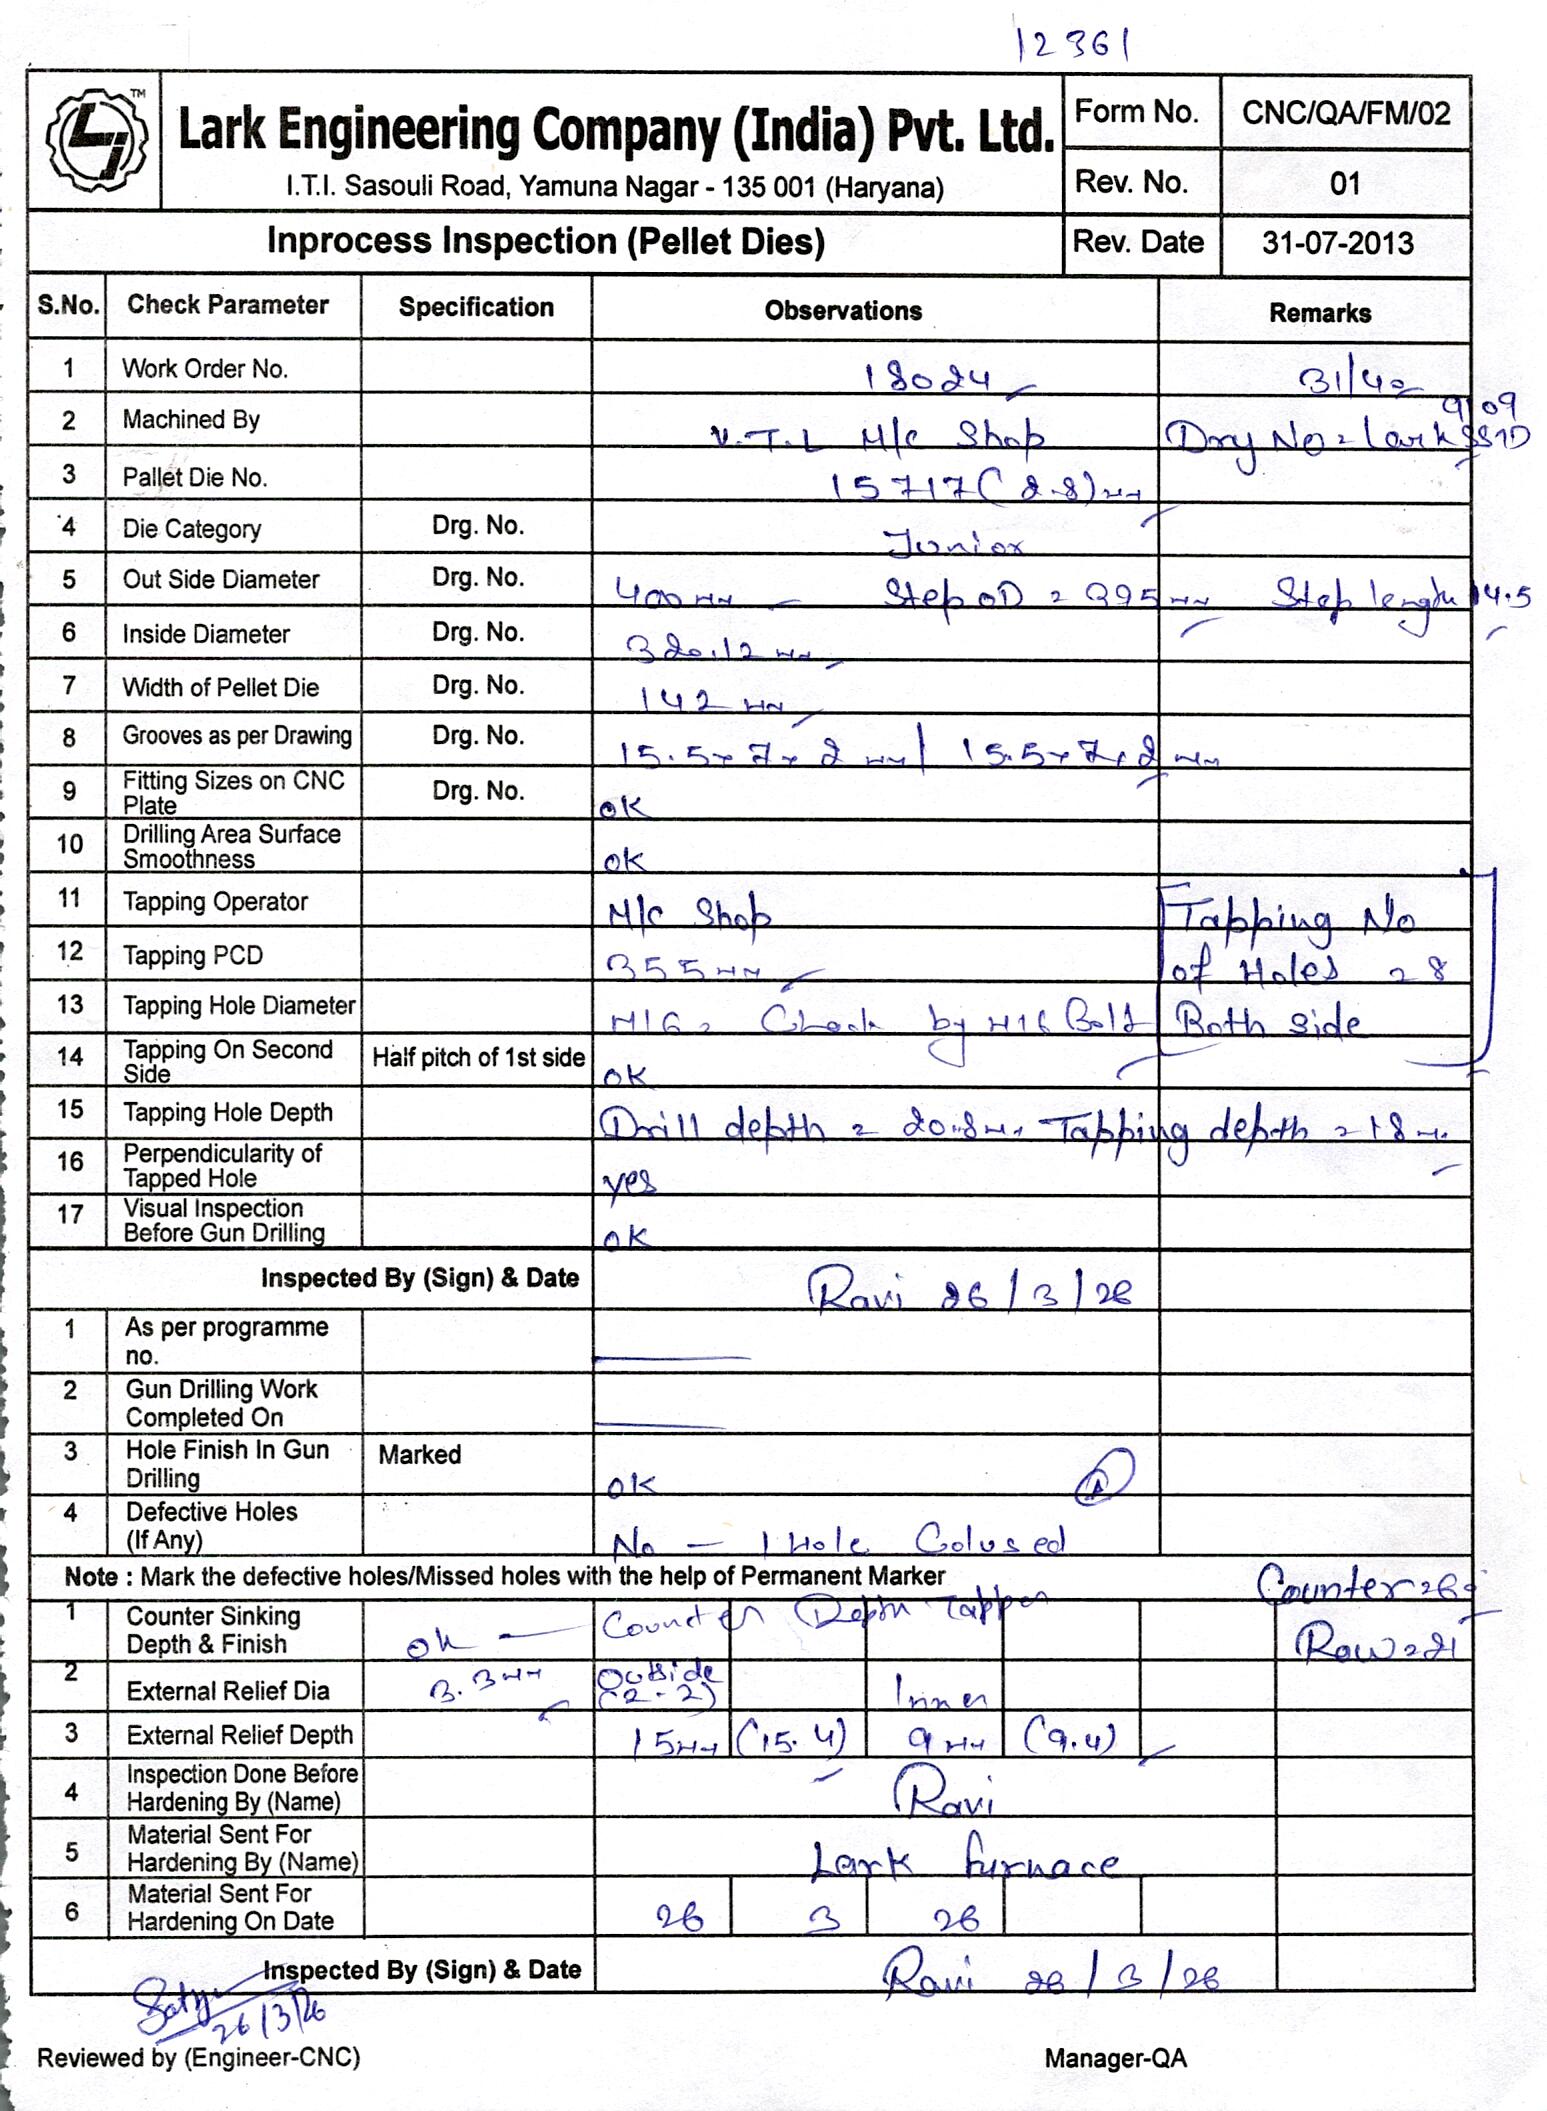 12361
TM
Lark Engineering Company (India) Pvt. Ltd.
I.T.I. Sasouli Road, Yamuna Nagar - 135 001 (Haryana)
Form No. CNC/QA/FM/02
Rev. No. 01
Inprocess Inspection (Pellet Dies) Rev. Date 31-07-2013
S.No. Check Parameter Specification Observations Remarks
1 Work Order No. 18024 31/40
9/09
2 Machined By V.T.L M/c Shop Drg No = Lark
3 Pallet Die No. 15717 (2.8) mm
4 Die Category Drg. No. Junior
5 Out Side Diameter Drg. No. 400 mm Step OD = 395 mm Step length 14.5
6 Inside Diameter Drg. No. 320.12 mm
7 Width of Pellet Die Drg. No. 142 mm
8 Grooves as per Drawing Drg. No. 15.5 x 7 x 2 mm / 15.5 x 7 x 2 mm
9 Fitting Sizes on CNC Plate Drg. No. ok
10 Drilling Area Surface Smoothness ok
11 Tapping Operator M/c Shop Tapping No
12 Tapping PCD 355 mm of Holes = 8
13 Tapping Hole Diameter M16 = Check by M16 Bolt Both side
14 Tapping On Second Side Half pitch of 1st side ok
15 Tapping Hole Depth Drill depth = 20.8 mm Tapping depth = 18 mm
16 Perpendicularity of Tapped Hole yes
17 Visual Inspection Before Gun Drilling ok
Inspected By (Sign) & Date Ravi 26/3/26
1 As per programme no.
2 Gun Drilling Work Completed On
3 Hole Finish In Gun Drilling Marked ok A
4 Defective Holes (If Any) No - 1 Hole Colused
Note : Mark the defective holes/Missed holes with the help of Permanent Marker Counter = 60
1 Counter Sinking Depth & Finish ok Counter Depth Tapper Row = 21
2 External Relief Dia 3.3 mm Outside (2-2) Inner
3 External Relief Depth 15 mm (15.4) 9 mm (9.4)
4 Inspection Done Before Hardening By (Name) Ravi
5 Material Sent For Hardening By (Name) Lark furnace
6 Material Sent For Hardening On Date 26 3 26
Inspected By (Sign) & Date Ravi 26/3/26
26/3/26
Reviewed by (Engineer-CNC) Manager-QA